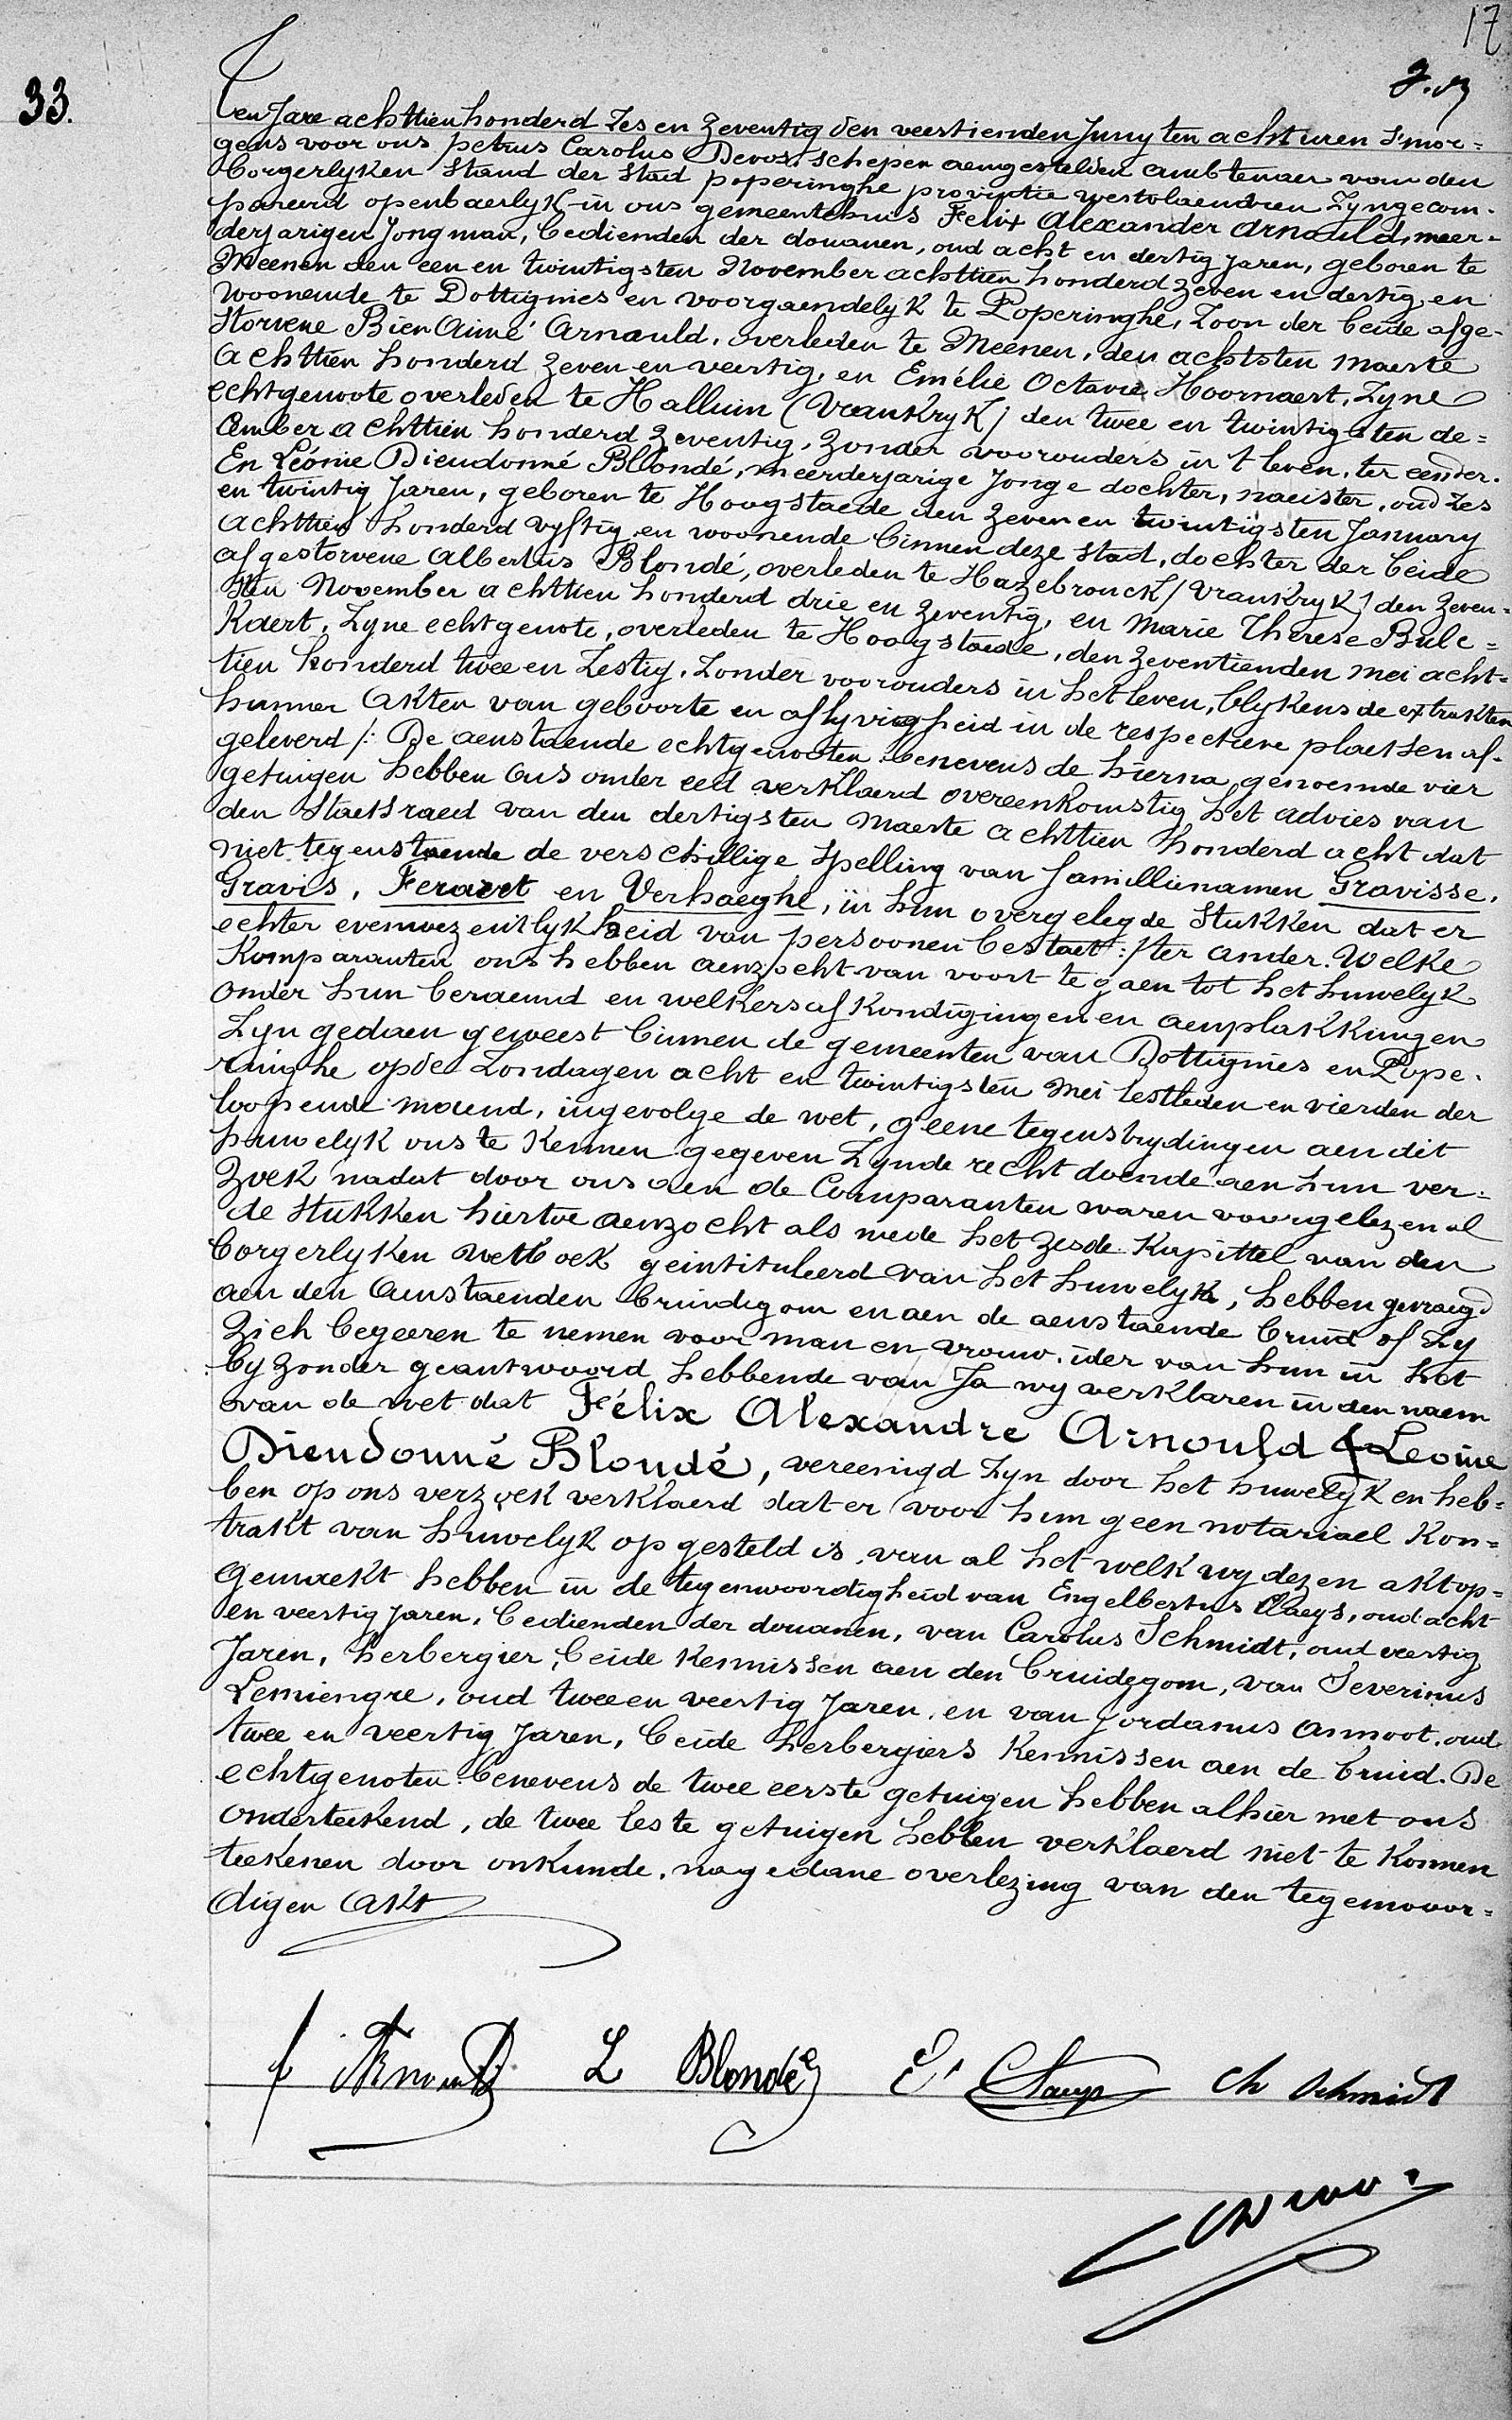 17
33.
Ten Jare achttien honderd zes en zeventig den veertienden Juny ten acht uren s'mor=
gens voor ons petrus Carolus Devos, schepen aengestelden ambtenaer van den
borgerlyken stand der stad poperinghe provintie westvlaendren zyn gecom=
pareerd openbaerlyk in ons gemeentehuis Felix Alexander Arnould, meer=
derjarigen Jongman, bedienden der douanen, oud acht en dertig jaren, geboren te
Meenen den een en twintigsten November achttien honderd zeven en dertig, en
woonende te Dottignies en voorgaendelyk te Poperinghe, Zoon der beide afge=
storvene Bien Aimé Arnauld, overleden te Meenen, den achtsten maerte
achttien honderd zeven en veertig, en Emélie Octavie Hoornaert, Zyne
echtgenoote overleden te Halluin (Vrankryk) den twee en twintigsten de=
cember achttien honderd zeventig, zonder voorouders in 't leven, ter eender.
En Léonie Dieudonné Blondé, meerderjarige Jonge dochter, naeister, oud zes
en twintig Jaren, geboren te Hoogstaede den zeven en twintigsten January
achttien honderd vyftig en woonende binnen deze stad, dochter der beide
afgestorvene Albertus Blondé, overleden te Hazebrouck (Vrankryk) den zeven=
sten November achttien honderd drie en zeventig, en Marie Therese Bulc=
kaert, Zyne echtgenote, overleden te Hoogstaede, den zeventienden mei acht=
tien honderd twee en zestig, zonder voorouders in het leven, blykens de extrakten
hunner akten van geboorte en aflyvigheid in de respective plaetsen af=
geleverd /: De aenstaende echtgenooten benevens de hierna genoemde vier
getuigen hebben ons onder eed verklaerd overeenkomstig het advies van
den Staetsraed van den dertigsten maerte achttien honderd acht dat
niet tegenstaende de verschillige spelling van famillienamen Gravisse,
Gravis, Feraert en Verhaeghe, in hun overgelegde stukken dat er
echter evenwezentlykheid van persoonen bestaet :/ ter ander. Welke
Komparanten ons hebben aenzocht van voort te gaen tot het huwelyk
onder hun beraemd en welkers afkondigingen en aenplakkingen
Zyn gedaen geweest binnen de gemeenten van Dottignies en Pope=
ringhe op de Zondagen acht en twintigsten mei lestleden en vierden der
loopende maend, ingevolge de wet, geene tegenstrydingen aen dit
huwelyk ons te kennen gegeven Zynde recht doende aen hun ver=
zoek nadat door ons aen de Comparanten waren voorgelezen al
de stukken hiertoe aenzocht als mede het zesde Kapittel van den
borgerlyken wetboek geintituleerd van het huwelyk, hebben gevraegd
aen den aenstaenden bruidigom en aen de aenstaende bruid of zy
zich begeeren te nemen voor man en vrouw, ider van hun in het
byzonder geantwoord hebbende van Ja wy verklaren in den naem
van de wet dat Félix Alexandre Arnould & Leonie
Dieudonné Blondé, vereenigd zyn door het huwelyk en heb=
ben op ons verzoek verklaerd dat er voor hun geen notariael Kon=
trakt van huwelyk opgesteld is, van al het welk wy dezen akt op=
gemaekt hebben in de tegenwoordigheid van Engelbertus Claeys, oud acht
en veertig Jaren, bedienden der douanen, van Carolus Schmidt, oud veertig
Jaren, herbergier, beide kennissen aen den bruidegom, van Severinus
Lemiengre, oud twee en veertig Jaren, en van Jordanus Asmoot, oud
twee en veertig Jaren, beide herbergiers kennissen aen de bruid. De
echtgenoten benevens de twee eerste getuigen hebben alhier met ons
onderteekend, de twee leste getuigen hebben verklaerd niet te konnen
teekenen door onkunde, na gedane overlezing van den tegenwoor=
digen akt
f Arnould L Blondé E. Claeys Ch Schmidt
Devos